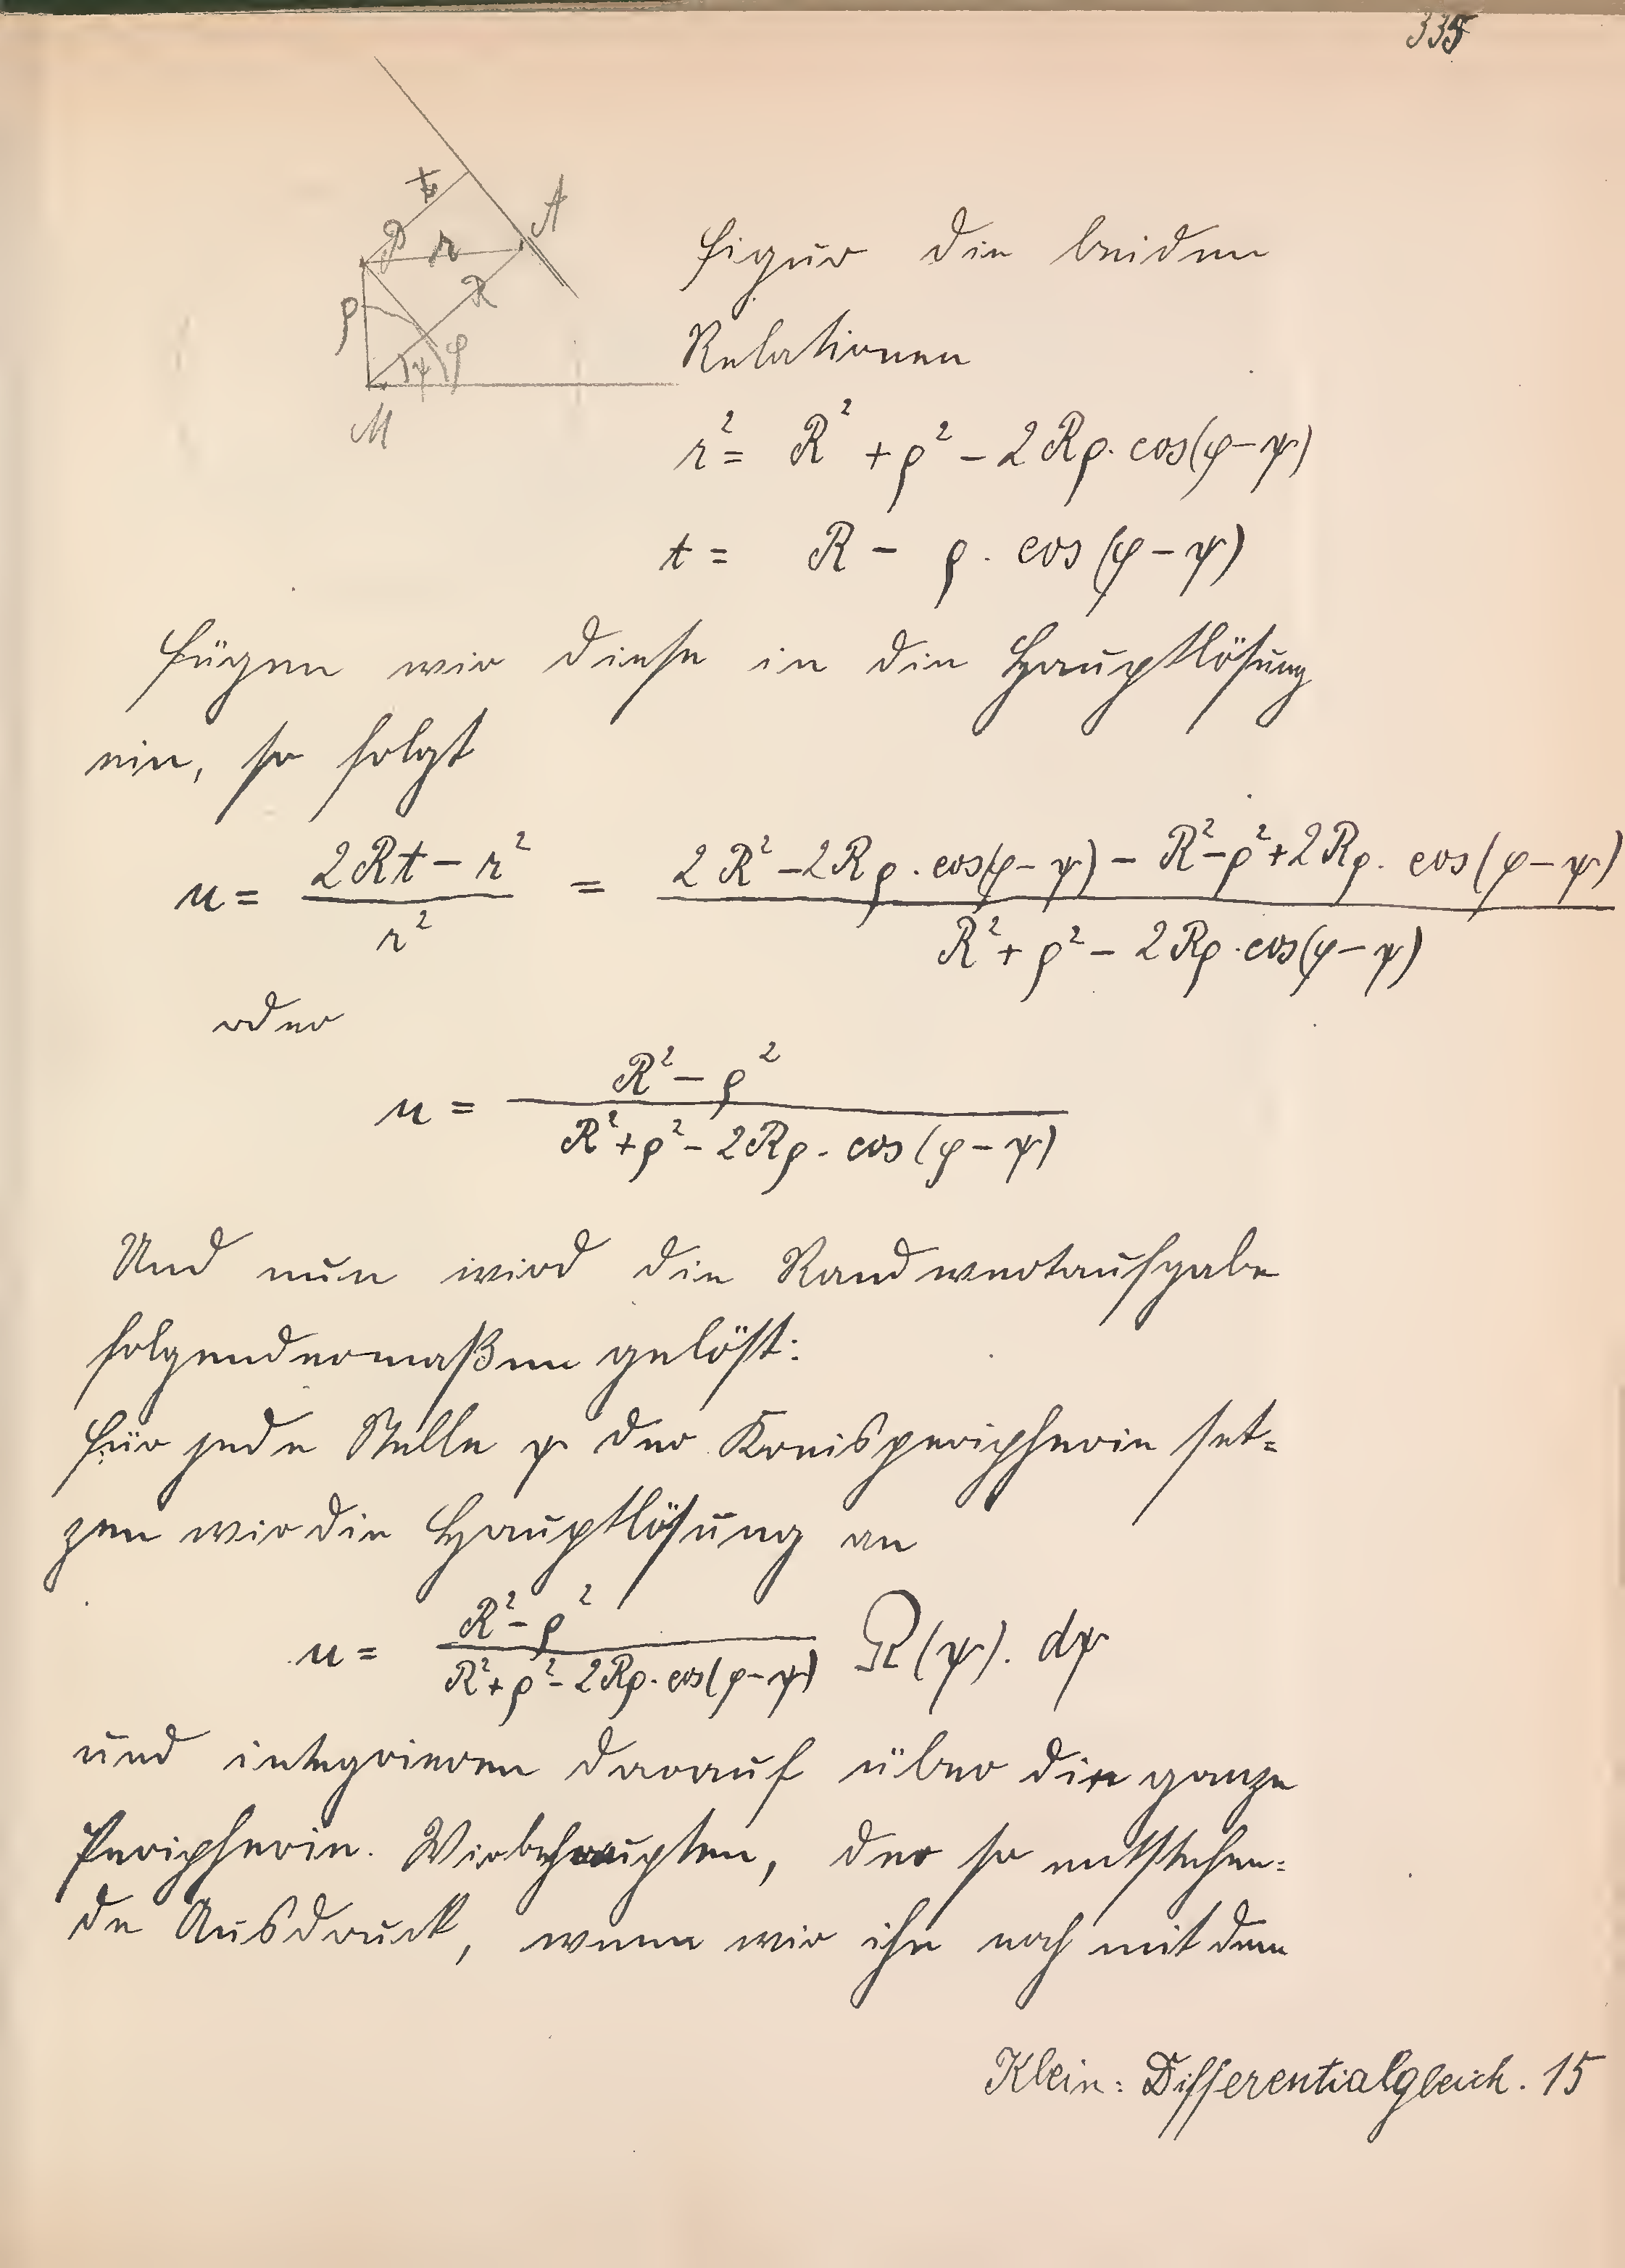 335
t
A
P
r
R
ρ
ψ
φ
M
Figur die beiden
Relationen
r² = R² + ρ² - 2Rρ. cos(φ-ψ)
t = R - ρ. cos(φ-ψ)
Fügen wir diese in die Hauptlösung
ein, so folgt
u = (2Rt - r²)/r² = (2R² - 2Rρ. cos(φ-ψ) - R² - ρ² + 2Rρ. cos(φ-ψ))/(R² + ρ² - 2Rρ. cos(φ-ψ))
oder
u = (R² - ρ²)/(R² + ρ² - 2Rρ. cos(φ-ψ))
Und nun wird die Randwertaufgabe
folgendermaßen gelöst:
Für jede Stelle ψ der Kreisperipherie set=
zen wir die Hauptlösung an
u = (R² - ρ²)/(R² + ρ² - 2Rρ. cos(φ-ψ)) Ω(ψ). dψ
und integrieren darauf über die ganze
Peripherie. Wir behaupten, der so entstehen=
de Ausdruck, wenn wir ihn noch mit dem
Klein: Differentialgleich. 15